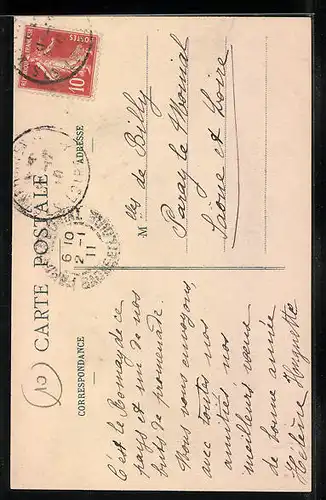 CARTE POSTALE
CORRESPONDANCE
ADRESSE
C'est le Tornay de ce
pays et un de nos
buts de promenade.
Nous vous envoyons,
avec toutes nos
amitiés nos
meilleurs vœux
de bonne année
Hélène Huguette
M lles de Billy
Paray le Monial
Saône et Loire
POSTES
10
6-10
2-1
11
10